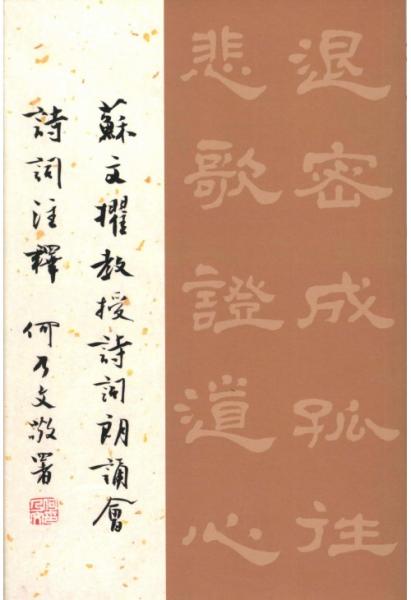 退密成孤往
悲歌證道心
蘇文擢教授詩詞朗誦會
詩詞注釋 何乃文敬署